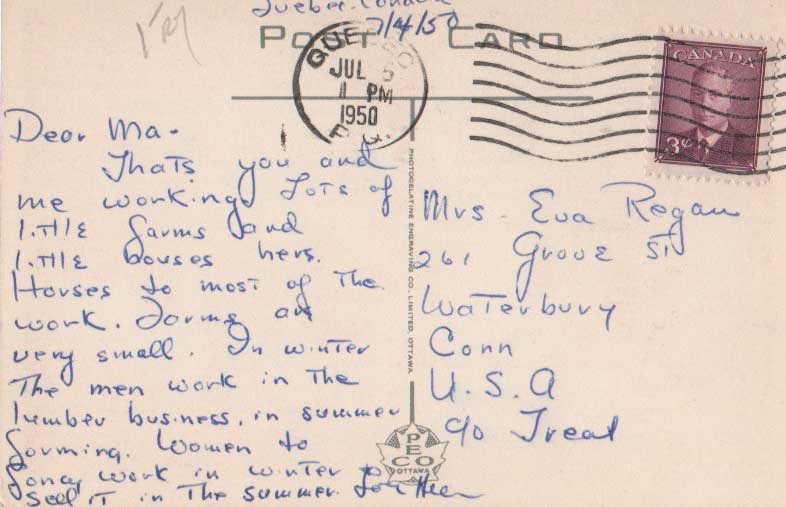 Quebec. Canada
7/4/50
POST CARD
QUEBEC
JUL 5
1 PM
1950
P. Q.
CANADA
3¢
Dear Ma-
Thats you and
me working. Lots of
little farms and
little houses here.
Horses to most of the
work. Farms are
very small. In winter
The men work in The
lumber business, in summer
farming. Women to
fancy work in winter &
sell it in The summer.
Mrs. Eva Regan
261 Grove St
Waterbury
Conn
U.S.A
c/o Treat
PHOTOGELATINE ENGRAVING CO. LIMITED, OTTAWA
PECO
OTTAWA